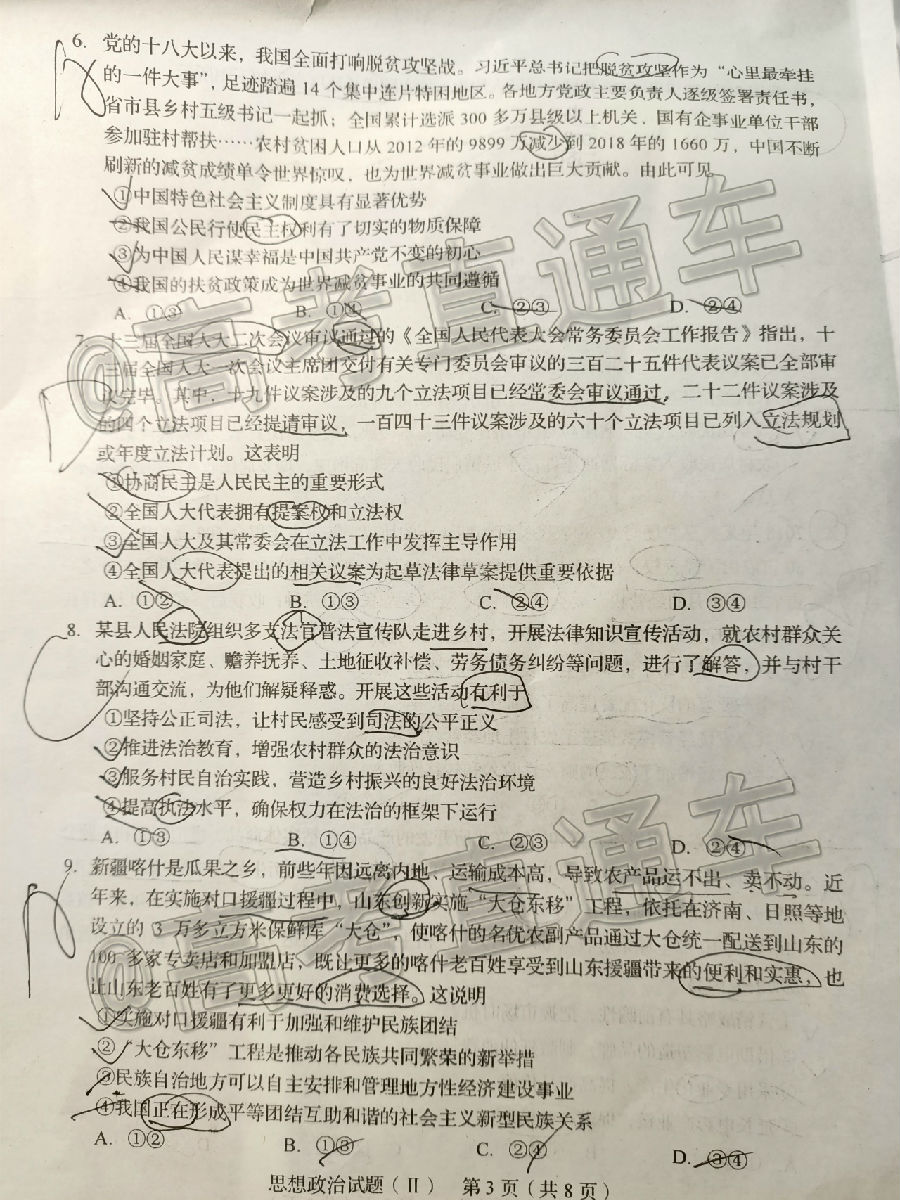 6. 党的十八大以来，我国全面打响脱贫攻坚战。习近平总书记把脱贫攻坚作为“心里最牵挂
的一件大事”，足迹踏遍 14 个集中连片特困地区。各地方党政主要负责人逐级签署责任书，
省市县乡村五级书记一起抓；全国累计选派 300 多万县级以上机关、国有企事业单位干部
参加驻村帮扶……农村贫困人口从 2012 年的 9899 万减少到 2018 年的 1660 万，中国不断
刷新的减贫成绩单令世界惊叹，也为世界减贫事业做出巨大贡献。由此可见
①中国特色社会主义制度具有显著优势
②我国公民行使民主权利有了切实的物质保障
③为中国人民谋幸福是中国共产党不变的初心
④我国的扶贫政策成为世界减贫事业的共同遵循
A. ①③ B. ①④ C. ②③ D. ②④
7. 十三届全国人大二次会议审议通过的《全国人民代表大会常务委员会工作报告》指出，十
三届全国人大一次会议主席团交付有关专门委员会审议的三百二十五件代表议案已全部审
议完毕。其中，十九件议案涉及的九个立法项目已经常委会审议通过，二十二件议案涉及
的四个立法项目已经提请审议，一百四十三件议案涉及的六十个立法项目已列入立法规划
或年度立法计划。这表明
①协商民主是人民民主的重要形式
②全国人大代表拥有提案权和立法权
③全国人大及其常委会在立法工作中发挥主导作用
④全国人大代表提出的相关议案为起草法律草案提供重要依据
A. ①② B. ①③ C. ②④ D. ③④
8. 某县人民法院组织多支法官普法宣传队走进乡村，开展法律知识宣传活动，就农村群众关
心的婚姻家庭、赡养抚养、土地征收补偿、劳务债务纠纷等问题，进行了解答，并与村干
部沟通交流，为他们解疑释惑。开展这些活动有利于
①坚持公正司法，让村民感受到司法的公平正义
②推进法治教育，增强农村群众的法治意识
③服务村民自治实践，营造乡村振兴的良好法治环境
④提高执法水平，确保权力在法治的框架下运行
A. ①③ B. ①④ C. ②③ D. ②④
9. 新疆喀什是瓜果之乡，前些年因远离内地、运输成本高，导致农产品运不出、卖不动。近
年来，在实施对口援疆过程中，山东创新实施“大仓东移”工程，依托在济南、日照等地
设立的 3 万多立方米保鲜库“大仓”，使喀什的名优农副产品通过大仓统一配送到山东的
100 多家专卖店和加盟店，既让更多的喀什老百姓享受到山东援疆带来的便利和实惠，也
让山东老百姓有了更多更好的消费选择。这说明
①实施对口援疆有利于加强和维护民族团结
②“大仓东移”工程是推动各民族共同繁荣的新举措
③民族自治地方可以自主安排和管理地方性经济建设事业
④我国正在形成平等团结互助和谐的社会主义新型民族关系
A. ①② B. ①③ C. ②④ D. ③④
思想政治试题（Ⅱ） 第 3 页（共 8 页）
@高考直通车
@高考直通车